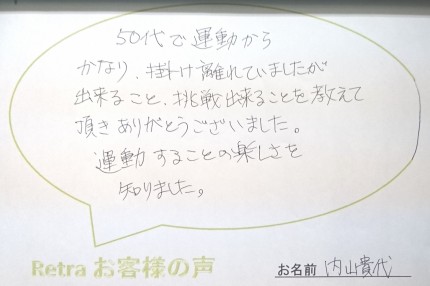 50代で運動から
かなり、掛け離れていましたが
出来ること、挑戦出来ることを教えて
頂きありがとうございました。
運動することの楽しさを
知りました。
Retra お客様の声
お名前 内山貴代